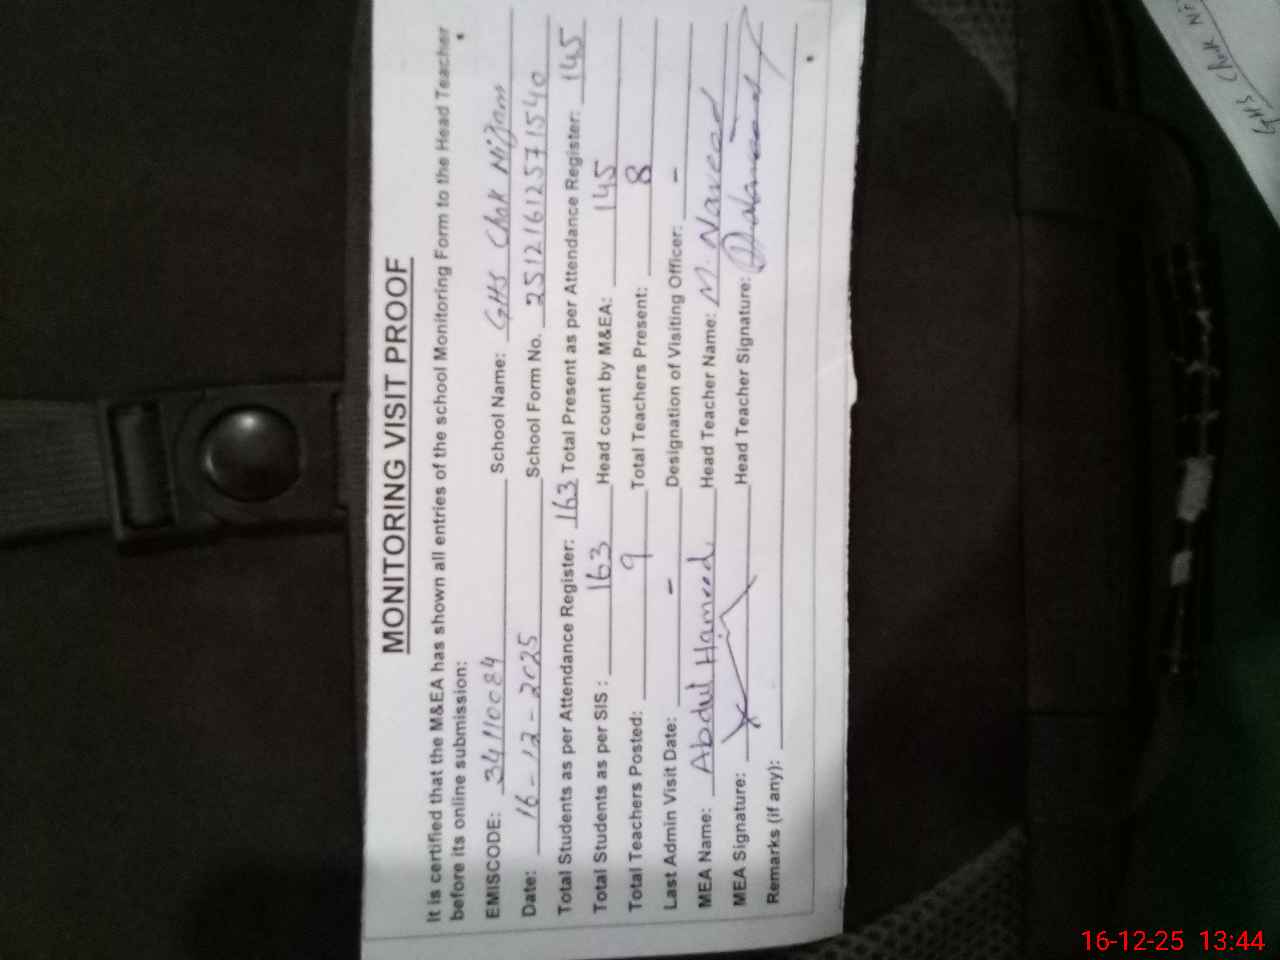 MONITORING VISIT PROOF
It is certified that the M&EA has shown all entries of the school Monitoring Form to the Head Teacher
before its online submission:
EMISCODE: 34110084 School Name: GHS Chak Nizam
Date: 16-12-2025 School Form No. 25121612571540
Total Students as per Attendance Register: 163 Total Present as per Attendance Register: 145
Total Students as per SIS: 163 Head count by M&EA: 145
Total Teachers Posted: 9 Total Teachers Present: 8
Last Admin Visit Date: - Designation of Visiting Officer: -
MEA Name: Abdul Hameed Head Teacher Name: M. Naveed
MEA Signature: Head Teacher Signature:
Remarks (if any):
GHS Chak
16-12-25 13:44